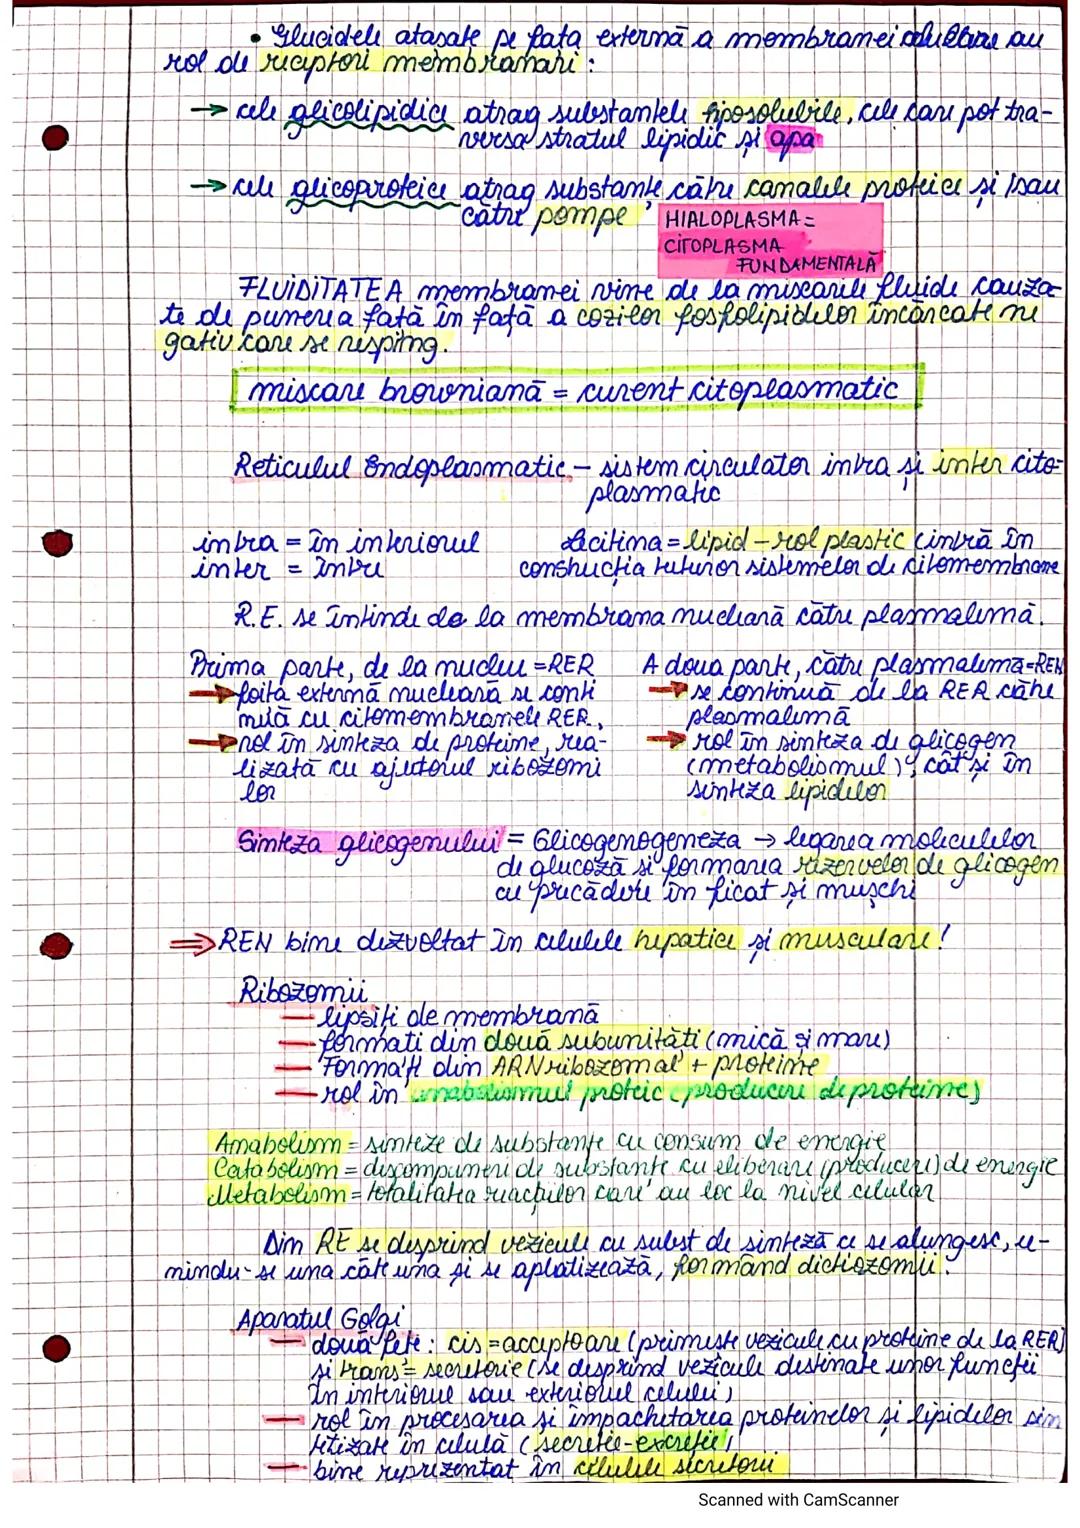 • Glucidele atașate pe fața externă a membranei celulare au
rol de receptori membranari:
→ cele glicolipidice atrag substanțele liposolubile, cele care pot tra-
versa stratul lipidic și apa
→ cele glicoproteice atrag substanțe către canalele proteice și/sau
către pompe
HIALOPLASMA =
CITOPLASMA
FUNDAMENTALĂ
FLUIDITATEA membranei vine de la mișcarile fluide cauza-
te de punerea față în față a cozilor fosfolipidelor încărcate ne
gativ care se resping.
miscare browniană = curent citoplasmatic
Reticulul Endoplasmatic - sistem circulator intra și inter cito=
plasmatic
intra = în interiorul
inter = între
Lecitina = lipid - rol plastic (intră în
construcția tuturor sistemelor de citomembrane
R.E. se întinde de la membrana nucleară către plasmalemă.
Prima parte, de la nucleu = RER
→ foița externă nucleară se conti
nuă cu citomembranele RER.
→ rol în sinteza de proteine, rea-
lizată cu ajutorul ribozomi
lor
A doua parte, către plasmalemă = REN
→ se continuă de la RER către
plasmalemă
→ rol în sinteza de glicogen
(metabolismul), cât și în
sinteza lipidelor
Sinteza glicogenului = Glicogenogeneza → legarea moleculelor
de glucoză si formarea rezervelor de glicogen
cu precădere în ficat și mușchi
⇒ REN bine dezvoltat în celulele hepatice și musculare!
Ribozomii
— lipsiți de membrană
— formati din două subunități (mică și mare)
— Formați din ARN ribozomal + proteine
— rol în anabolismul proteic (producere de proteine)
Anabolism = sinteze de substanțe cu consum de energie
Catabolism = descompuneri de substanțe cu eliberare (producere) de energie
Metabolism = totalitatea reacțiilor care au loc la nivel celular
Din RE se desprind vezicule cu subst de sinteză ce se alungesc, u-
nindu-se una câte una și se aplatizează, formând dictiozomii.
Aparatul Golgi
— două fețe: cis = acceptoare (primește vezicule cu proteine de la RER)
și trans = secretorie (se desprind vezicule destinate unor funcții
în interiorul sau exteriorul celulei)
— rol în procesarea și împachetarea proteinelor și lipidelor sin
tetizate în celulă (secreție-excreție)
— bine reprezentat în celulele secretorii
Scanned with CamScanner